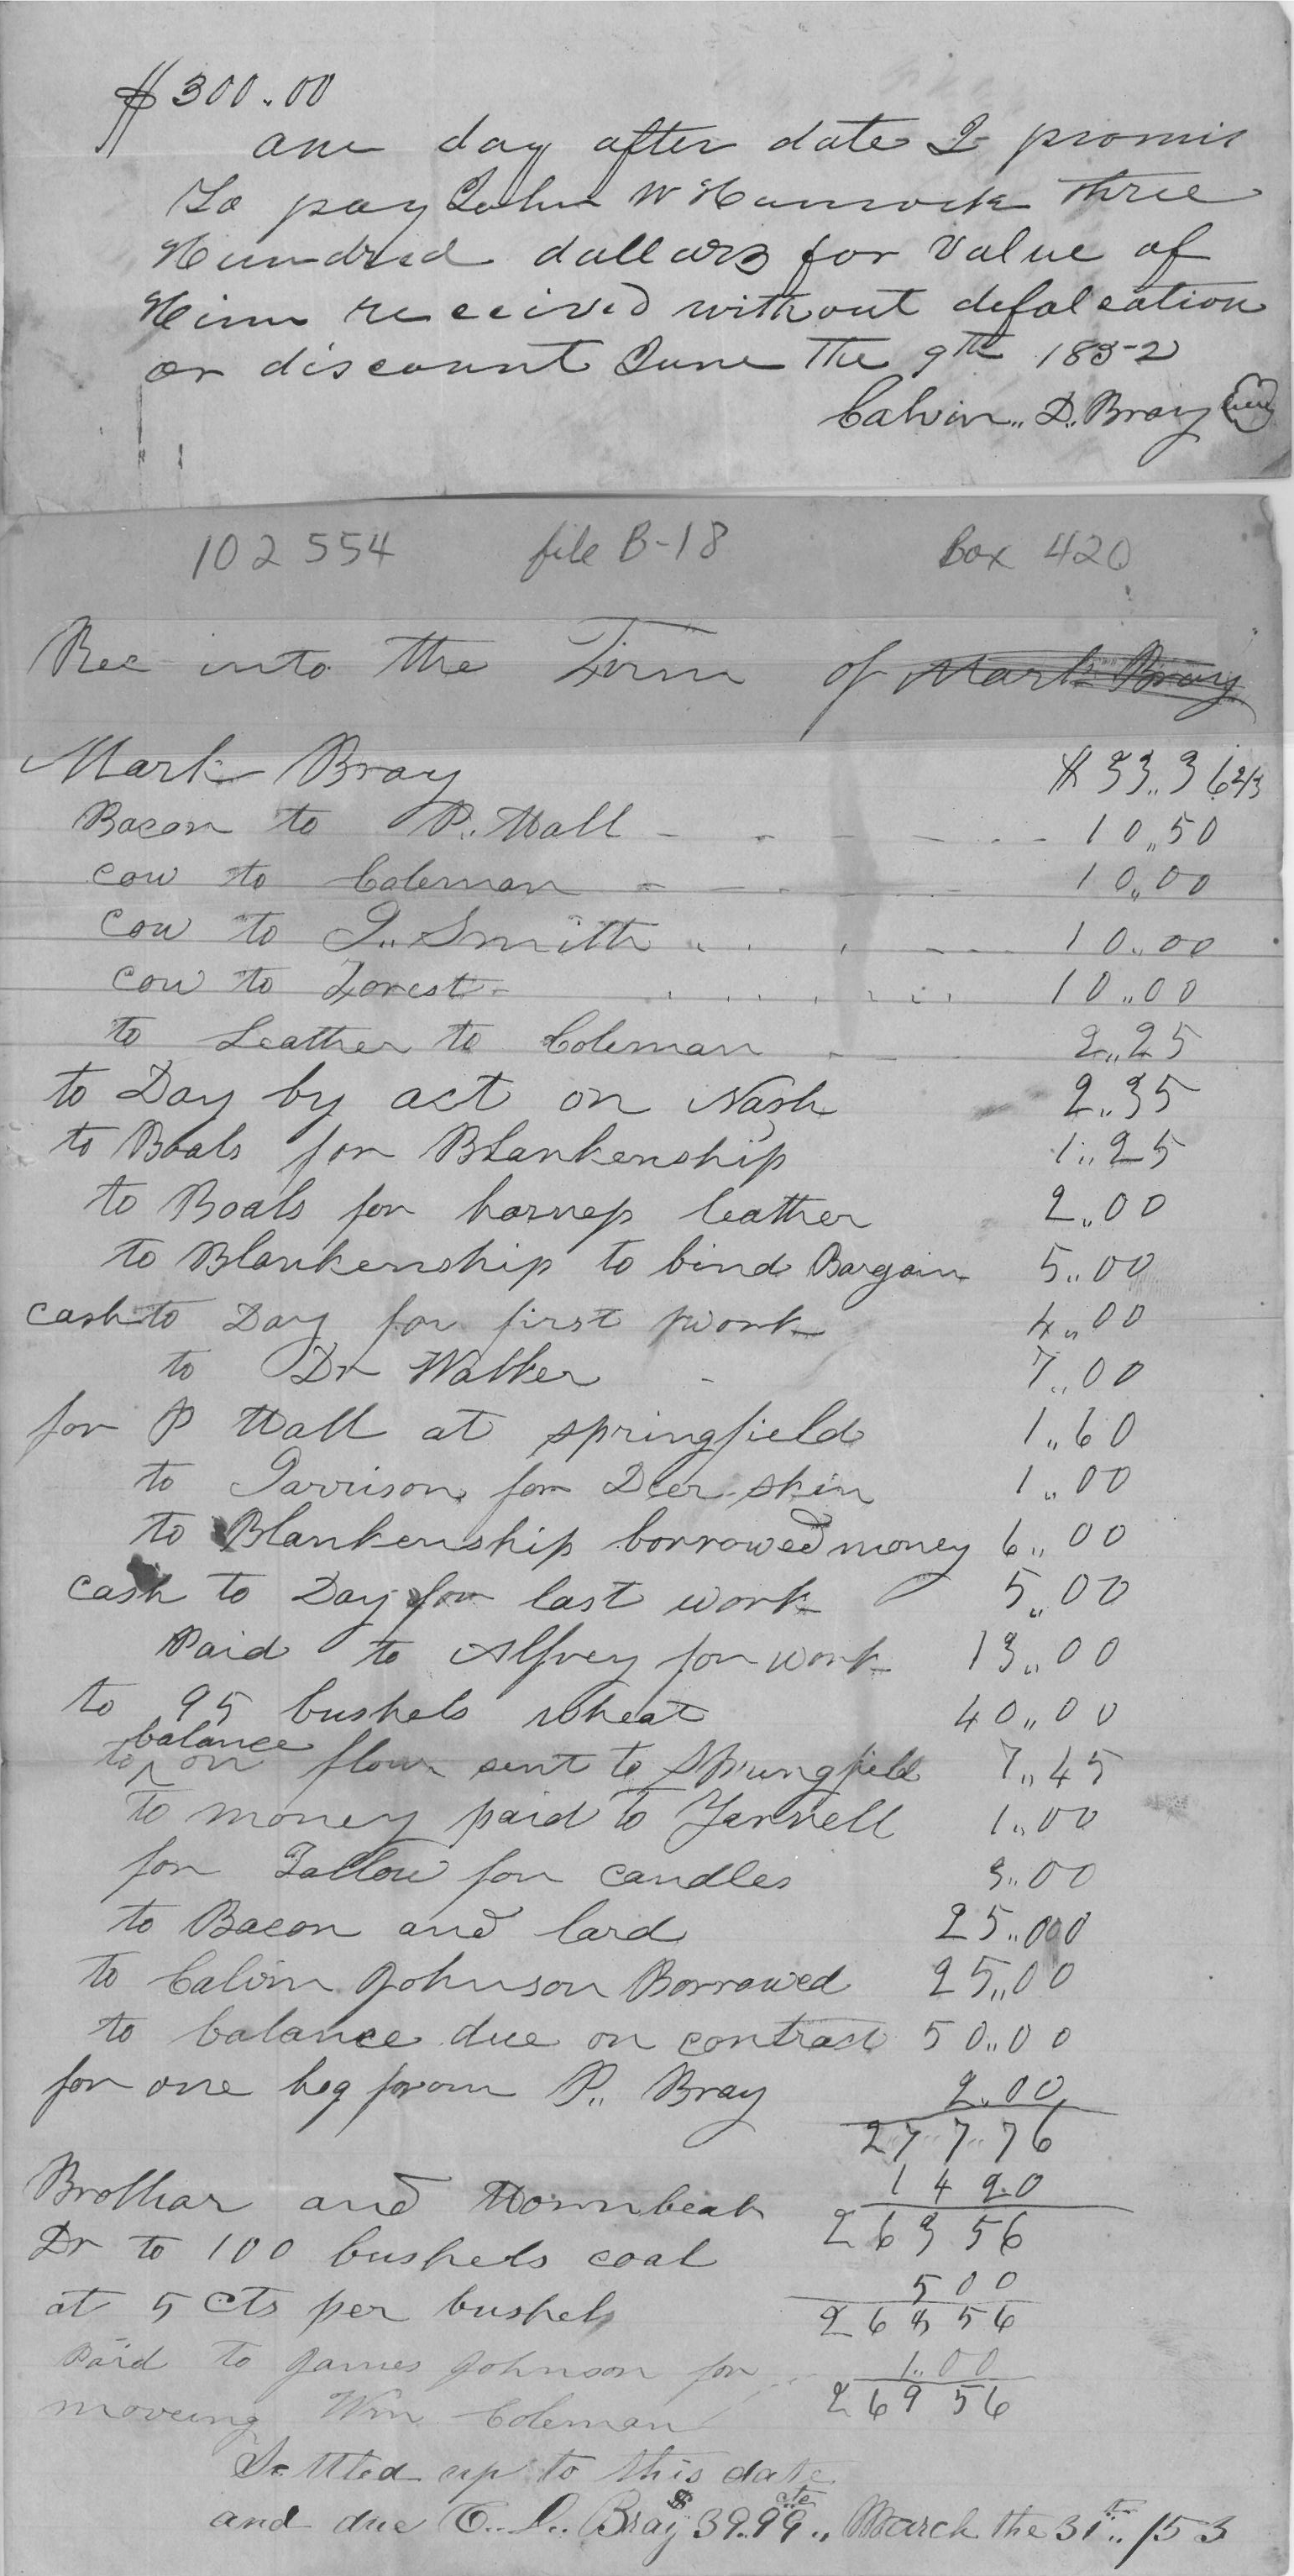 $300.00
one day after date I promis
To pay John W Hancock three
Hundred dollars for value of
Him received without defalcation
or discount June the 9th 1852
Calvin,, D,, Bray seal
102554 file B-18 Box 420
Rec into the Firm of Mark Bray
Mark Bray $33,,36 2/3
Bacon to P,, Hall - - - - - 10,,50
cow to Coleman - - - 10,,00
cow to J,, Smith - - - 10,,00
cow to Forest - - - - 10,,00
to Leather to Coleman - - 2,,25
to Day by act on Nash 2,,35
to Boals for Blankenship 1,,25
to Boals for harness leather 2,,00
to Blankenship to bind Bargain 5,,00
cash to Day for first work 4,,00
to Dr Walker - 7,,00
for P Hall at springfield 1,,60
to Garrison for Deer skin 1,,00
to Blankenship borrowed money 6,,00
cash to Day for last work 5,,00
Paid to Alfrey for work 13,,00
to 95 bushels wheat 40,,00
to balance on flour sent to Springfield 7,,45
To money paid to Yarnell 1,,00
for Tallow for candles 3,,00
to Bacon and lard 25,,00
to Calvin Johnson Borrowed 25,,00
to balance due on contract 50,,00
for one hog from P,, Bray 2,,00
277,,76
14 20
Brothar and Hornbeak 263 56
Dr to 100 bushels coal
500
at 5 cts per bushels 268 56
Paid to James Johnson for 1,,00
moveing Wm Coleman 269 56
Settled up to this date
and due C,, D,, Bray $39,,99 cts,, March the 31st,, /53